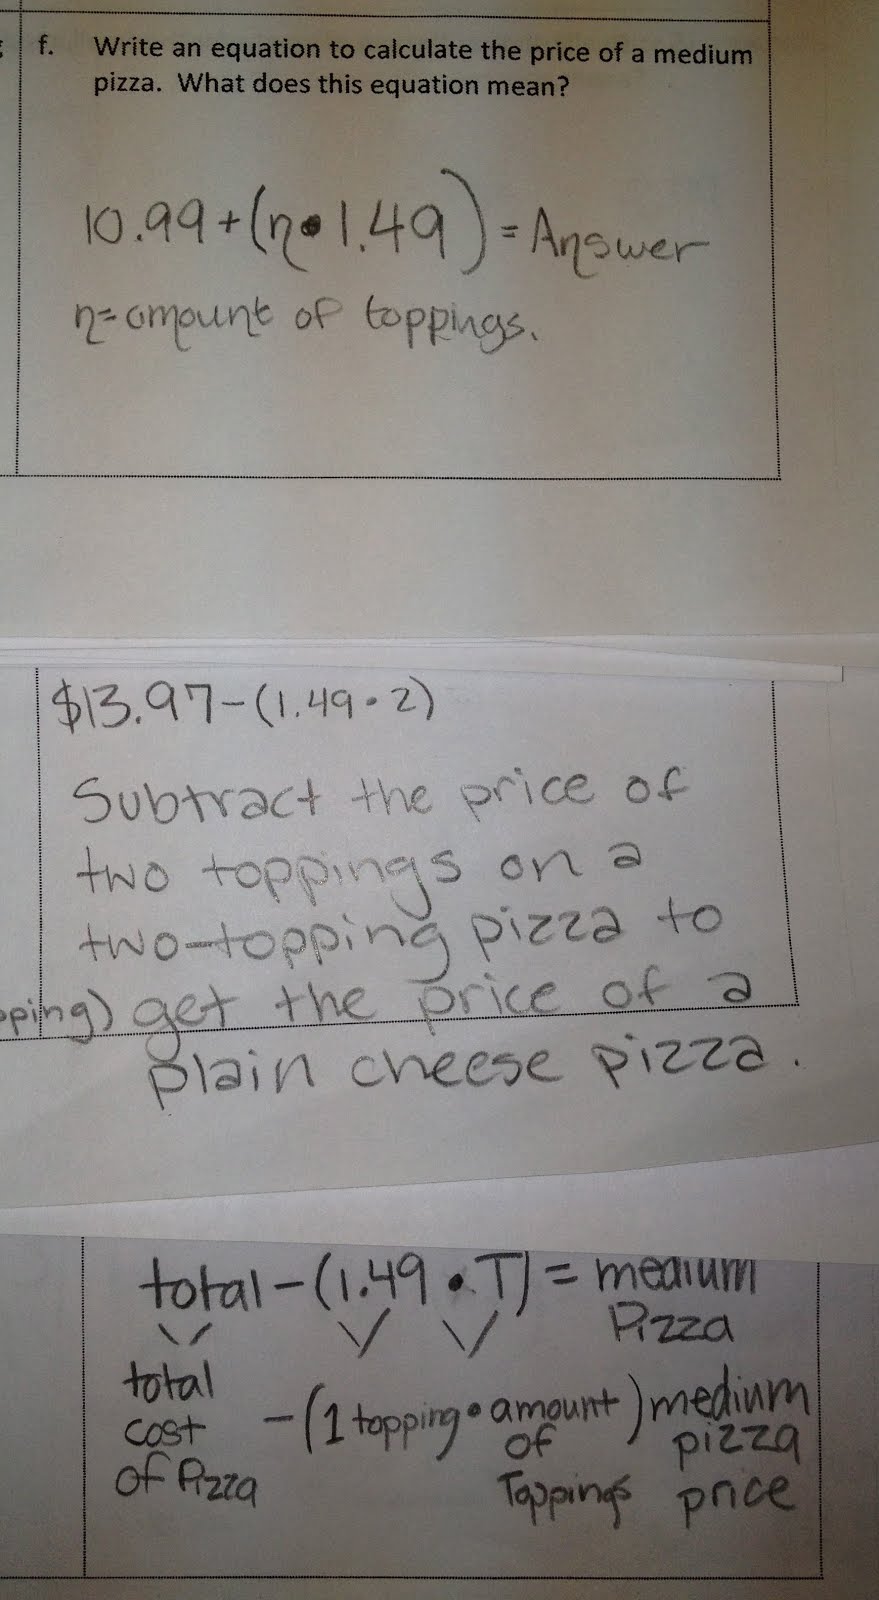 f. Write an equation to calculate the price of a medium
pizza. What does this equation mean?
10.99+(n•1.49)=Answer
n=amount of toppings.
$13.97-(1.49•2)
Subtract the price of
two toppings on a
two-topping pizza to
pping) get the price of a
plain cheese pizza.
total-(1.49•T)=medium
Pizza
total
cost
of Pizza
-(1 topping•amount
of
Toppings
) medium
pizza
price